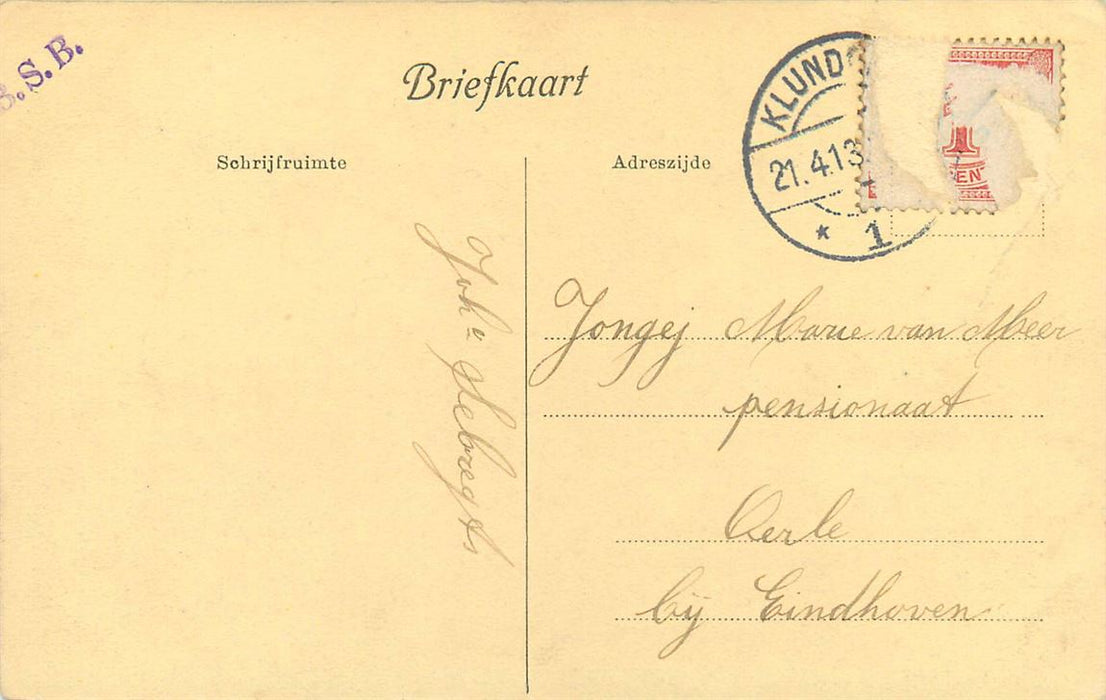 .S.B.
Briefkaart
Schrijfruimte
Adreszijde
KLUND
21.4.13
* 1
1
EN
Joha Sebregts
Jongej Marie van Meer
pensionaat
Oerle
bij Eindhoven